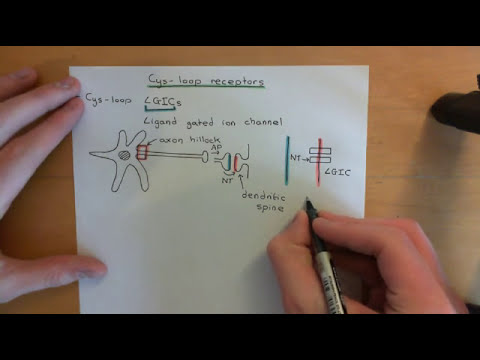 Cys-loop receptors
Cys-loop LGICs
Ligand gated ion channel
axon hillock
AP
NT
NT
LGIC
dendritic
spine